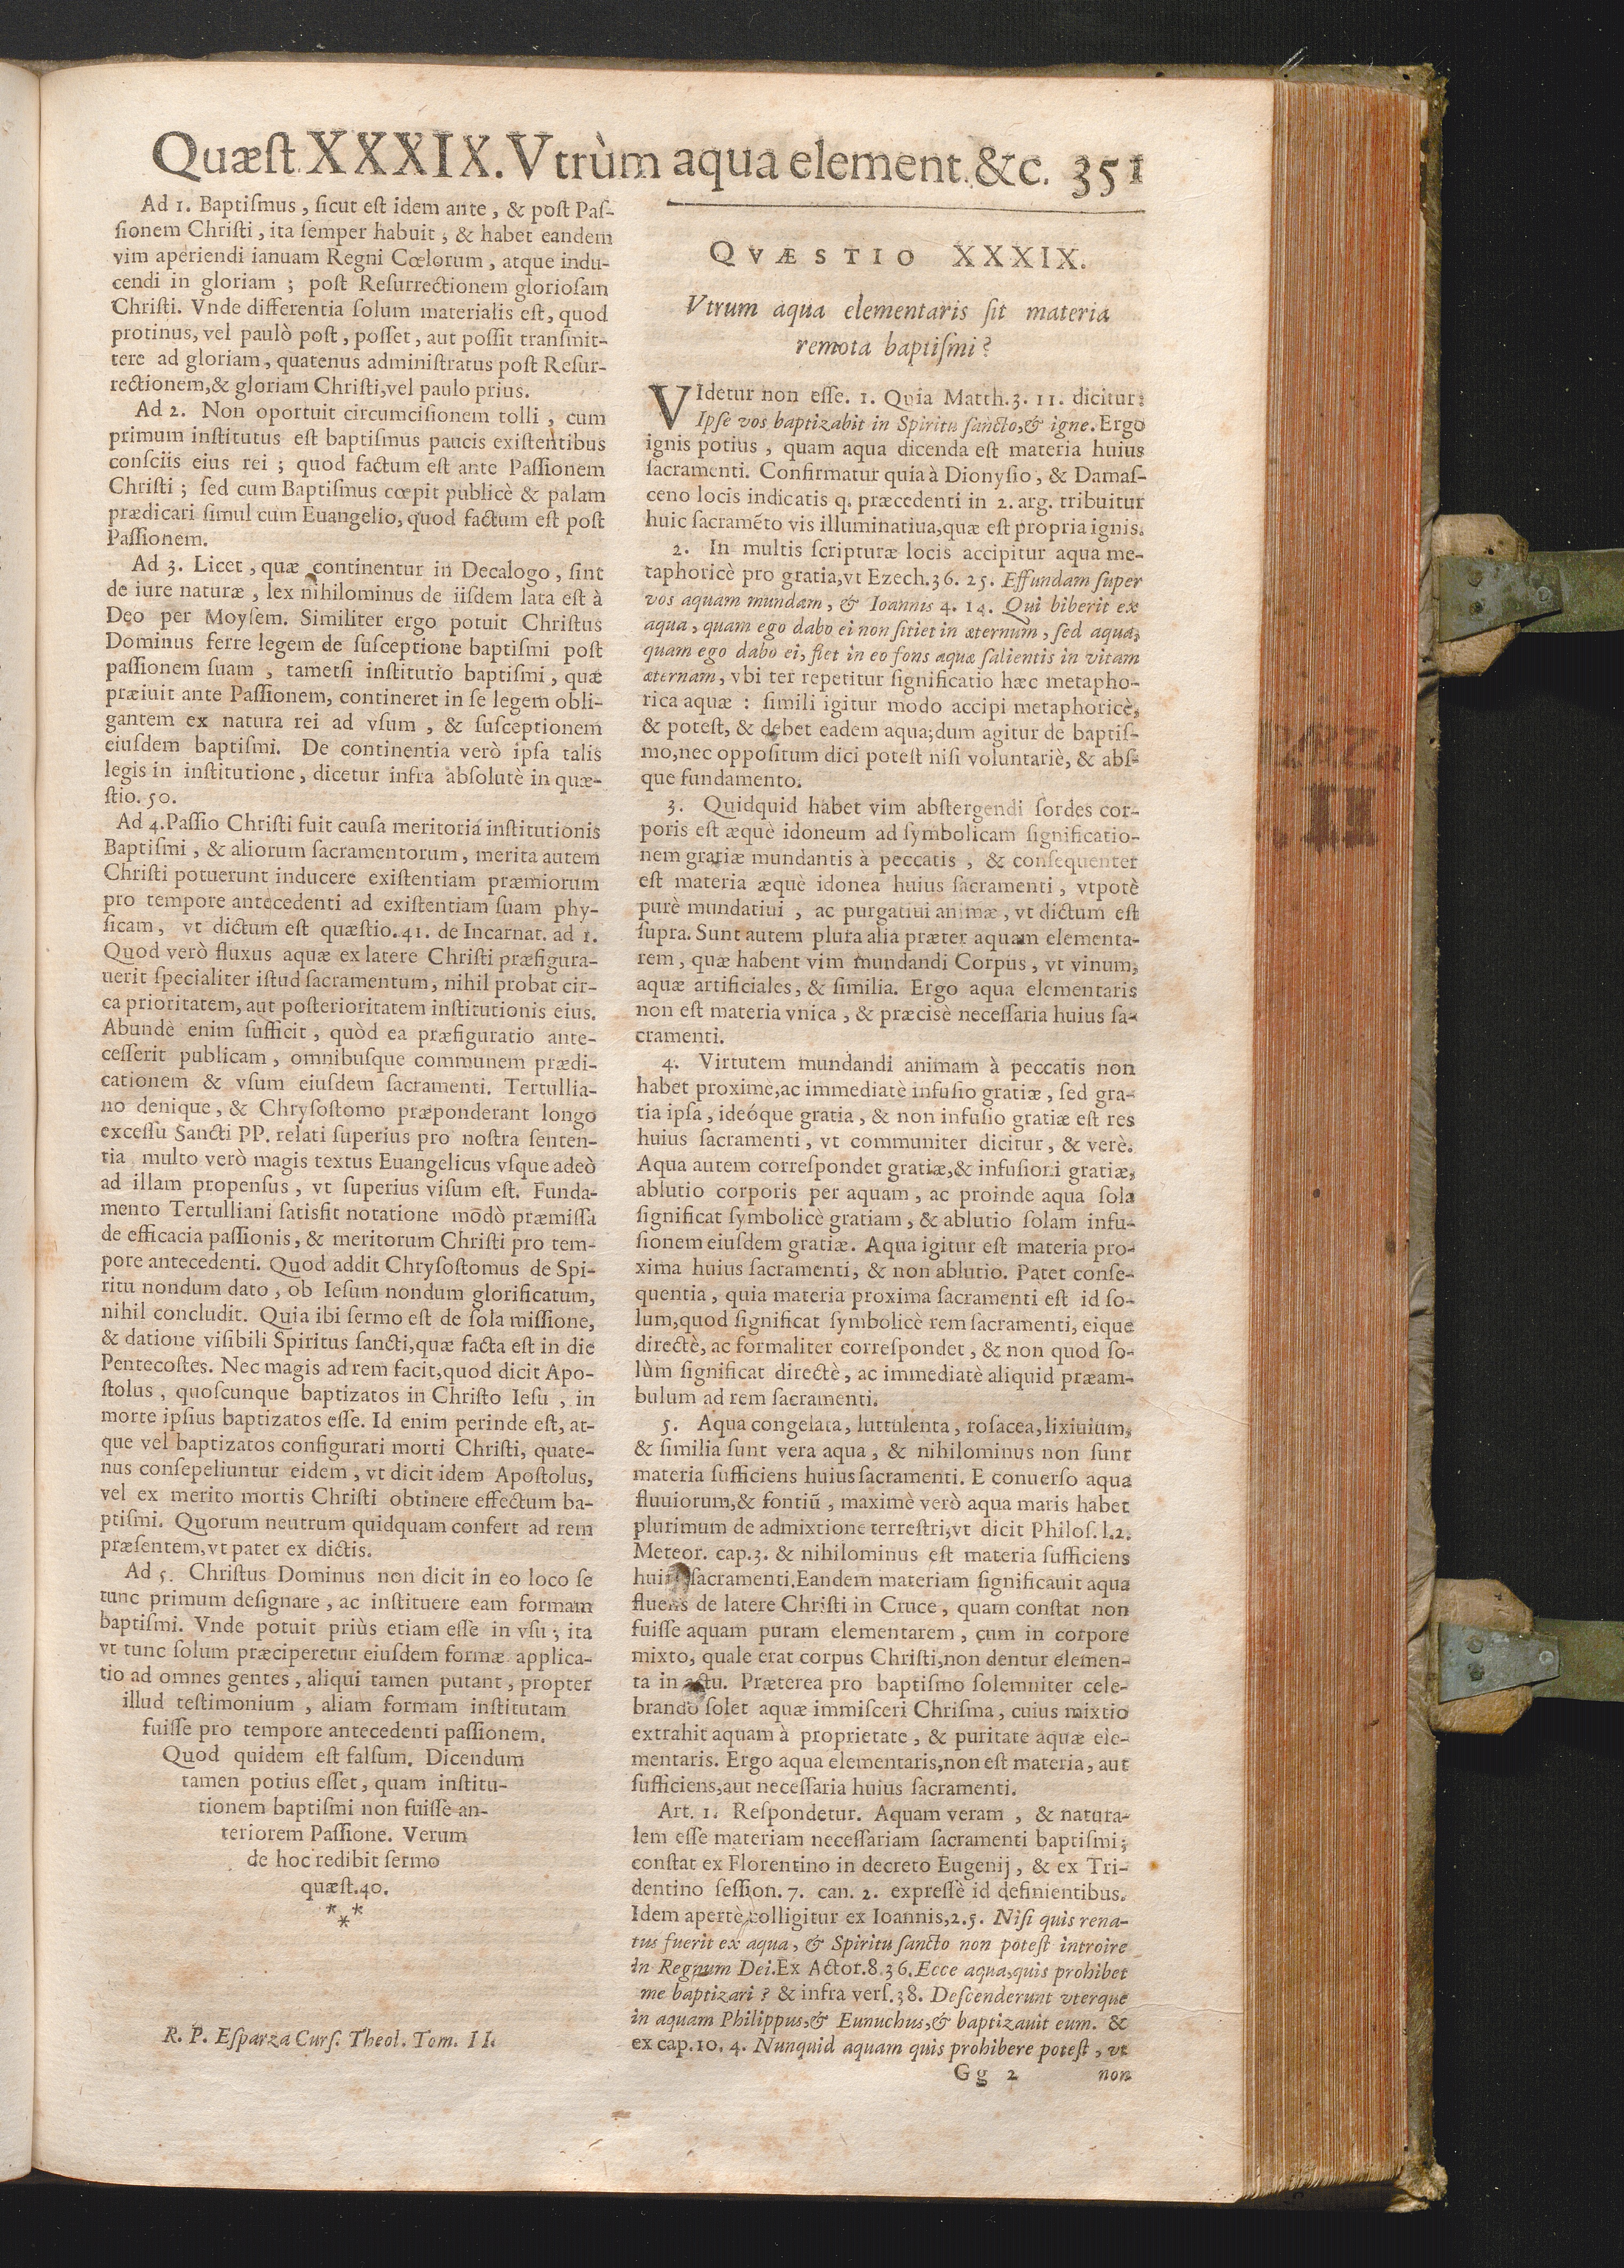 Quæſt. XXXIX. Vtrùm aqua element. &c. 351
Ad 1. Baptiſmus, ſicut eſt idem ante, & poſt Paſ-
ſionem Chriſti, ita ſemper habuit, & habet eandem
vim aperiendi ianuam Regni Cœlorum, atque indu-
cendi in gloriam; poſt Reſurrectionem glorioſam
Chriſti. Vnde differentia ſolum materialis eſt, quod
protinus, vel paulò poſt, poſſet, aut poſſit tranſmit-
tere ad gloriam, quatenus adminiſtratus poſt Reſur-
rectionem,& gloriam Chriſti,vel paulo prius.
Ad 2. Non oportuit circumciſionem tolli, cum
primum inſtitutus eſt baptiſmus paucis exiſtentibus
conſciis eius rei; quod factum eſt ante Paſſionem
Chriſti; ſed cum Baptiſmus cœpit publicè & palam
prædicari ſimul cum Euangelio, quod factum eſt poſt
Paſſionem.
Ad 3. Licet, quæ continentur in Decalogo, ſint
de iure naturæ, lex nihilominus de iiſdem lata eſt à
Deo per Moyſem. Similiter ergo potuit Chriſtus
Dominus ferre legem de ſuſceptione baptiſmi poſt
paſſionem ſuam, tametſi inſtitutio baptiſmi, quæ
præiuit ante Paſſionem, contineret in ſe legem obli-
gantem ex natura rei ad vſum, & ſuſceptionem
eiuſdem baptiſmi. De continentia verò ipſa talis
legis in inſtitutione, dicetur infra abſolutè in quæ-
ſtio. 50.
Ad 4. Paſſio Chriſti fuit cauſa meritoria inſtitutionis
Baptiſmi, & aliorum ſacramentorum, merita autem
Chriſti potuerunt inducere exiſtentiam præmiorum
pro tempore antecedenti ad exiſtentiam ſuam phy-
ſicam, vt dictum eſt quæſtio. 41. de Incarnat. ad 1.
Quod verò fluxus aquæ ex latere Chriſti præfigura-
uerit ſpecialiter iſtud ſacramentum, nihil probat cir-
ca prioritatem, aut poſterioritatem inſtitutionis eius.
Abundè enim ſufficit, quòd ea præfiguratio ante-
ceſſerit publicam, omnibuſque communem prædi-
cationem & vſum eiuſdem ſacramenti. Tertullia-
no denique, & Chryſoſtomo præponderant longo
exceſſu Sancti PP. relati ſuperius pro noſtra ſenten-
tia multo verò magis textus Euangelicus vſque adeò
ad illam propenſus, vt ſuperius viſum eſt. Funda-
mento Tertulliani ſatisfit notatione mōdò præmiſſa
de efficacia paſſionis, & meritorum Chriſti pro tem-
pore antecedenti. Quod addit Chryſoſtomus de Spi-
ritu nondum dato, ob Ieſum nondum glorificatum,
nihil concludit. Quia ibi ſermo eſt de ſola miſſione,
& datione viſibili Spiritus ſancti,quæ facta eſt in die
Pentecoſtes. Nec magis ad rem facit,quod dicit Apo-
ſtolus, quoſcunque baptizatos in Chriſto Ieſu, in
morte ipſius baptizatos eſſe. Id enim perinde eſt, at-
que vel baptizatos configurari morti Chriſti, quate-
nus conſepeliuntur eidem, vt dicit idem Apoſtolus,
vel ex merito mortis Chriſti obtinere effectum ba-
ptiſmi. Quorum neutrum quidquam confert ad rem
præſentem,vt patet ex dictis.
Ad 5. Chriſtus Dominus non dicit in eo loco ſe
tunc primum deſignare, ac inſtituere eam formam
baptiſmi. Vnde potuit priùs etiam eſſe in vſu; ita
vt tunc ſolum præciperetur eiuſdem formæ applica-
tio ad omnes gentes, aliqui tamen putant, propter
illud teſtimonium, aliam formam inſtitutam
fuiſſe pro tempore antecedenti paſſionem.
Quod quidem eſt falſum. Dicendum
tamen potius eſſet, quam inſtitu-
tionem baptiſmi non fuiſſe an-
teriorem Paſſione. Verum
de hoc redibit ſermo
quæſt.40.
* * *
R. P. Eſparza Curſ. Theol. Tom. II.
QVÆSTIO XXXIX.
Vtrum aqua elementaris ſit materia
remota baptiſmi?
VIdetur non eſſe. 1. Quia Matth. 3. 11. dicitur:
Ipſe vos baptizabit in Spiritu ſancto,& igne. Ergo
ignis potius, quam aqua dicenda eſt materia huius
ſacramenti. Confirmatur quia à Dionyſio, & Damaſ-
ceno locis indicatis q. præcedenti in 2. arg. tribuitur
huic ſacramẽto vis illuminatiua,quæ eſt propria ignis.
2. In multis ſcripturæ locis accipitur aqua me-
taphoricè pro gratia,vt Ezech. 36. 25. Effundam ſuper
vos aquam mundam, & Ioannis 4. 14. Qui biberit ex
aqua, quam ego dabo ei non ſitiet in æternum, ſed aqua,
quam ego dabo ei, fiet in eo fons aquæ ſalientis in vitam
æternam, vbi ter repetitur ſignificatio hæc metapho-
rica aquæ: ſimili igitur modo accipi metaphoricè,
& poteſt, & debet eadem aqua;dum agitur de baptiſ-
mo,nec oppoſitum dici poteſt niſi voluntariè, & abſ-
que fundamento.
3. Quidquid habet vim abſtergendi ſordes cor-
poris eſt æquè idoneum ad ſymbolicam ſignificatio-
nem gratiæ mundantis à peccatis, & conſequenter
eſt materia æquè idonea huius ſacramenti, vtpotè
purè mundatiui, ac purgatiui animæ, vt dictum eſt
ſupra. Sunt autem plura alia præter aquam elementa-
rem, quæ habent vim mundandi Corpus, vt vinum,
aquæ artificiales, & ſimilia. Ergo aqua elementaris
non eſt materia vnica, & præciſè neceſſaria huius ſa-
cramenti.
4. Virtutem mundandi animam à peccatis non
habet proximè,ac immediatè infuſio gratiæ, ſed gra-
tia ipſa, ideóque gratia, & non infuſio gratiæ eſt res
huius ſacramenti, vt communiter dicitur, & verè.
Aqua autem correſpondet gratiæ,& infuſioni gratiæ,
ablutio corporis per aquam, ac proinde aqua ſola
ſignificat ſymbolicè gratiam, & ablutio ſolam infu-
ſionem eiuſdem gratiæ. Aqua igitur eſt materia pro-
xima huius ſacramenti, & non ablutio. Patet conſe-
quentia, quia materia proxima ſacramenti eſt id ſo-
lum,quod ſignificat ſymbolicè rem ſacramenti, eique
directè, ac formaliter correſpondet, & non quod ſo-
lùm ſignificat directè, ac immediatè aliquid præam-
bulum ad rem ſacramenti.
5. Aqua congelata, luttulenta, roſacea, lixiuium,
& ſimilia ſunt vera aqua, & nihilominus non ſunt
materia ſufficiens huius ſacramenti. E conuerſo aqua
fluuiorum,& fontiũ, maximè verò aqua maris habet
plurimum de admixtione terreſtri,vt dicit Philoſ. l.2.
Meteor. cap.3. & nihilominus eſt materia ſufficiens
ſacramenti.Eandem materiam ſignificauit aqua
fluens de latere Chriſti in Cruce, quam conſtat non
fuiſſe aquam puram elementarem, cum in corpore
mixto, quale erat corpus Chriſti,non dentur elemen-
ta in actu. Præterea pro baptiſmo ſolemniter cele-
brando ſolet aquæ immiſceri Chriſma, cuius mixtio
extrahit aquam à proprietate, & puritate aquæ ele-
mentaris. Ergo aqua elementaris,non eſt materia, aut
ſufficiens,aut neceſſaria huius ſacramenti.
Art. 1. Reſpondetur. Aquam veram, & natura-
lem eſſe materiam neceſſariam ſacramenti baptiſmi;
conſtat ex Florentino in decreto Eugenij, & ex Tri-
dentino ſeſſion. 7. can. 2. expreſsè id definientibus.
Idem apertè colligitur ex Ioannis,2.5. Niſi quis rena-
tus fuerit ex aqua, & Spiritu ſancto non poteſt introire
in Regnum Dei.Ex Actor.8.36.Ecce aqua,quis prohibet
me baptizari? & infra verſ.38. Deſcenderunt vterque
in aquam Philippus,& Eunuchus,& baptizauit eum. &
ex cap.10. 4. Nunquid aquam quis prohibere poteſt, vt
Gg 2 non